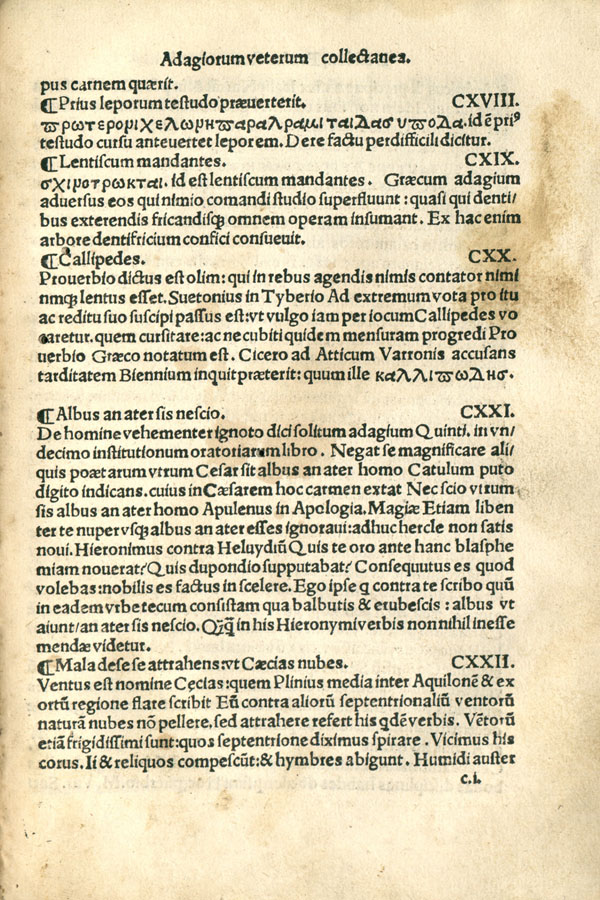 Adagiorum veterum collectanea.
pus carnem quærit.
¶Prius leporum testudo præuerterit. CXVIII.
ϖρωτερομιχελωμηϖαραλραμιταιδασυϖοδα. id ē priꝰ
testudo cursu anteuertet leporem. De re factu perdifficili dicitur.
¶Lentiscum mandantes. CXIX.
σχιμοτρωκται. id est lentiscum mandantes. Græcum adagium
aduersus eos qui nimio comandi studio superfluunt : quasi qui denti/
bus exterendis fricandisqꝫ omnem operam insumant. Ex hac enim
arbore dentifricium confici consueuit.
¶Callipedes. CXX.
Prouerbio dictus est olim: qui in rebus agendis nimis contator nimi
nmqꝫ lentus esset. Suetonius in Tyberio Ad extremum vota pro itu
ac reditu suo suscipi passus est:vt vulgo iam per iocum Callipedes vo
caretur. quem cursitare:ac ne cubiti quidem mensuram progredi Pro
uerbio Græco notatum est. Cicero ad Atticum Varronis accusans
tarditatem Biennium inquit præterit: quum ille καλλιϖωδησ.
¶Albus an ater sis nescio. CXXI.
De homine vehementer ignoto dici solitum adagium Quinti. in vn/
decimo institutionum oratoriarum libro. Negat se magnificare ali/
quis poætarum vtrum Cesar sit albus an ater homo Catulum puto
digito indicans. cuius in Cæsarem hoc carmen extat Nec scio vtrum
sis albus an ater homo Apulenus in Apologia. Magiæ Etiam liben
ter te nuper vsqꝫ albus an ater esses ignoraui:adhuc hercle non satis
noui. Hieronimus contra Heluydiū Quis te oro ante hanc blasphe
miam nouerat? Quis dupondio supputabat? Consequutus es quod
volebas:nobilis es factus in scelere. Ego ipse q contra te scribo quū
in eadem vrbe tecum consistam qua balbutis & erubescis : albus vt
aiunt/an ater sis nescio. Qꝫq̄ in his Hieronymi verbis non nihil inesse
mendæ videtur.
¶Mala de se se attrahens:vt Cæcias nubes. CXXII.
Ventus est nomine Cęcias:quem Plinius media inter Aquilonē & ex
ortū regione flare scribit Eū contra aliorū septentrionaliū ventorū
naturā nubes nō pellere, sed attrahere refert his qdē verbis. Vētorū
etiā frigidissimi sunt:quos septentrione diximus spirare. Vicimus his
corus. Ii & reliquos compescūt:& hymbres abigunt. Humidi auster
c.i.